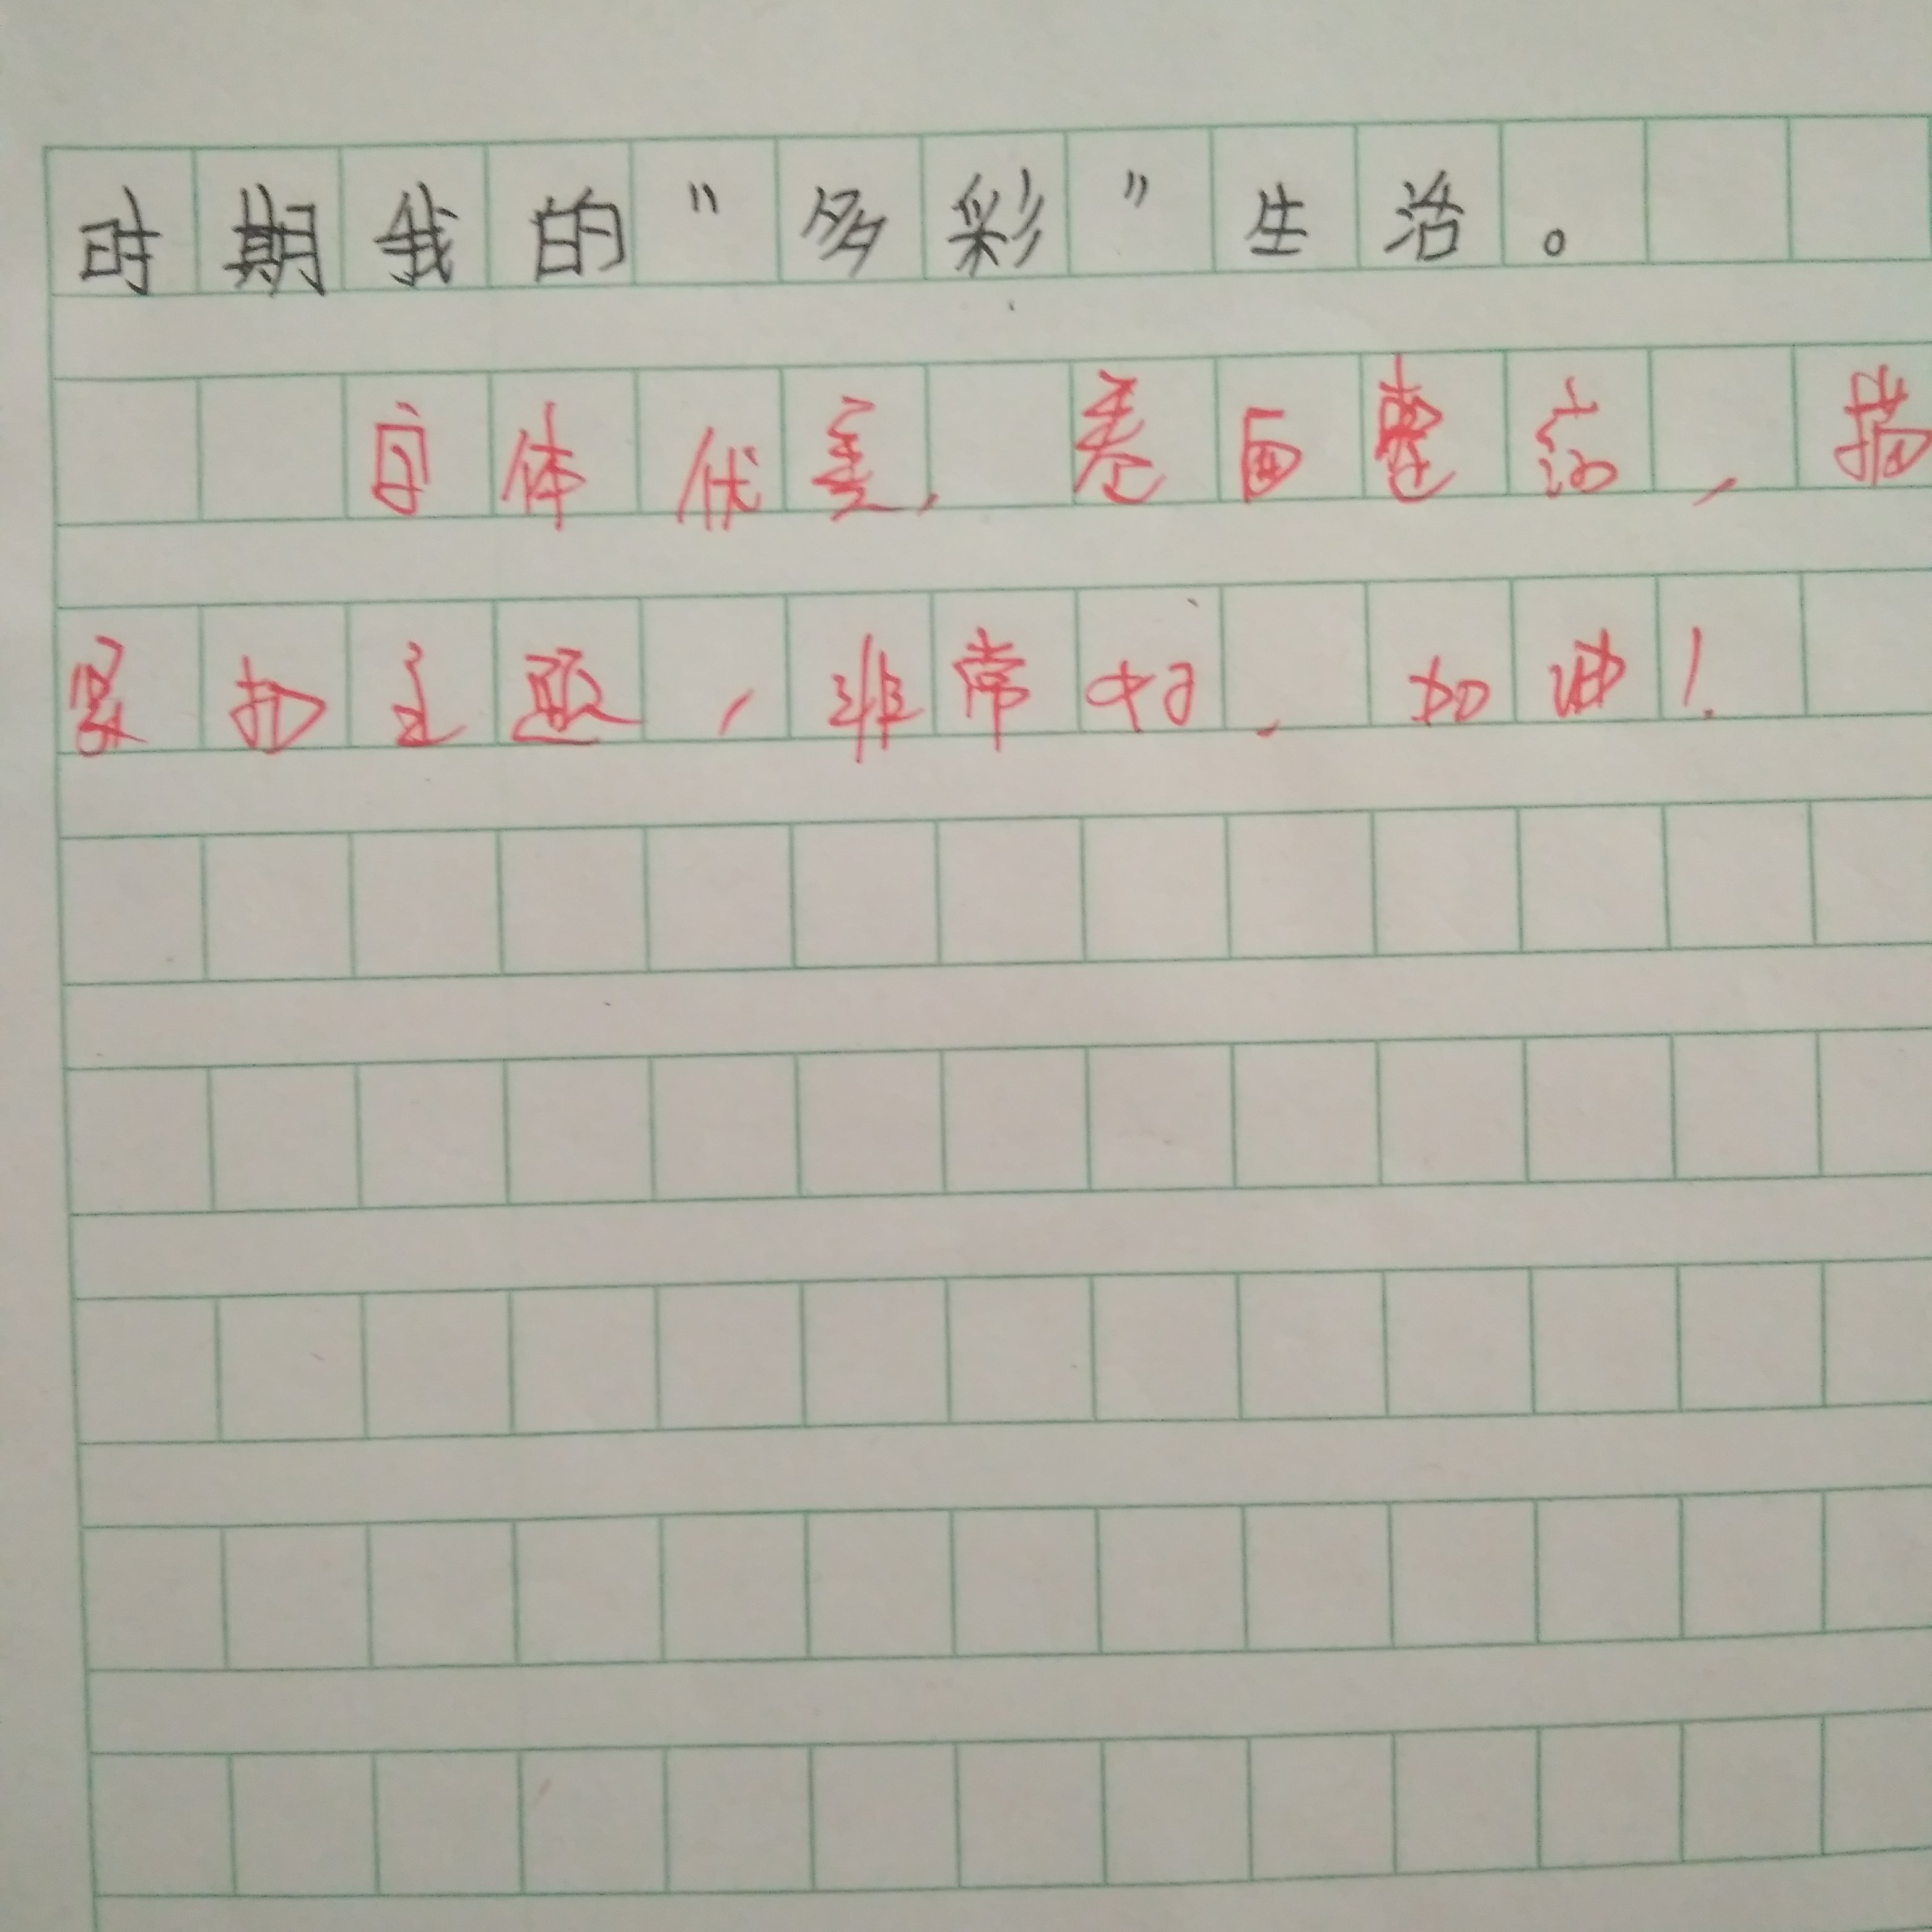 时期我的“多彩”生活。
字体优美，卷面整洁，描
紧扣主题，非常好，加油！